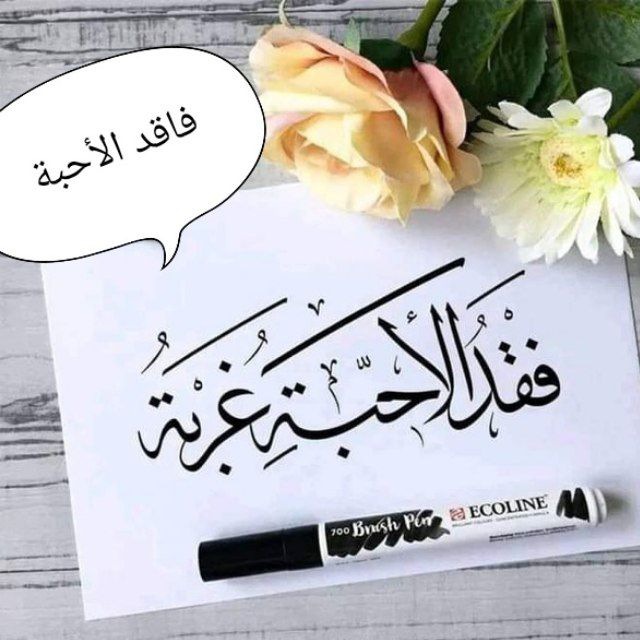 فاقد الأحبة
فَقْدُ الأحبّةِ غُربْةٌ
700 Brush Pen
ECOLINE